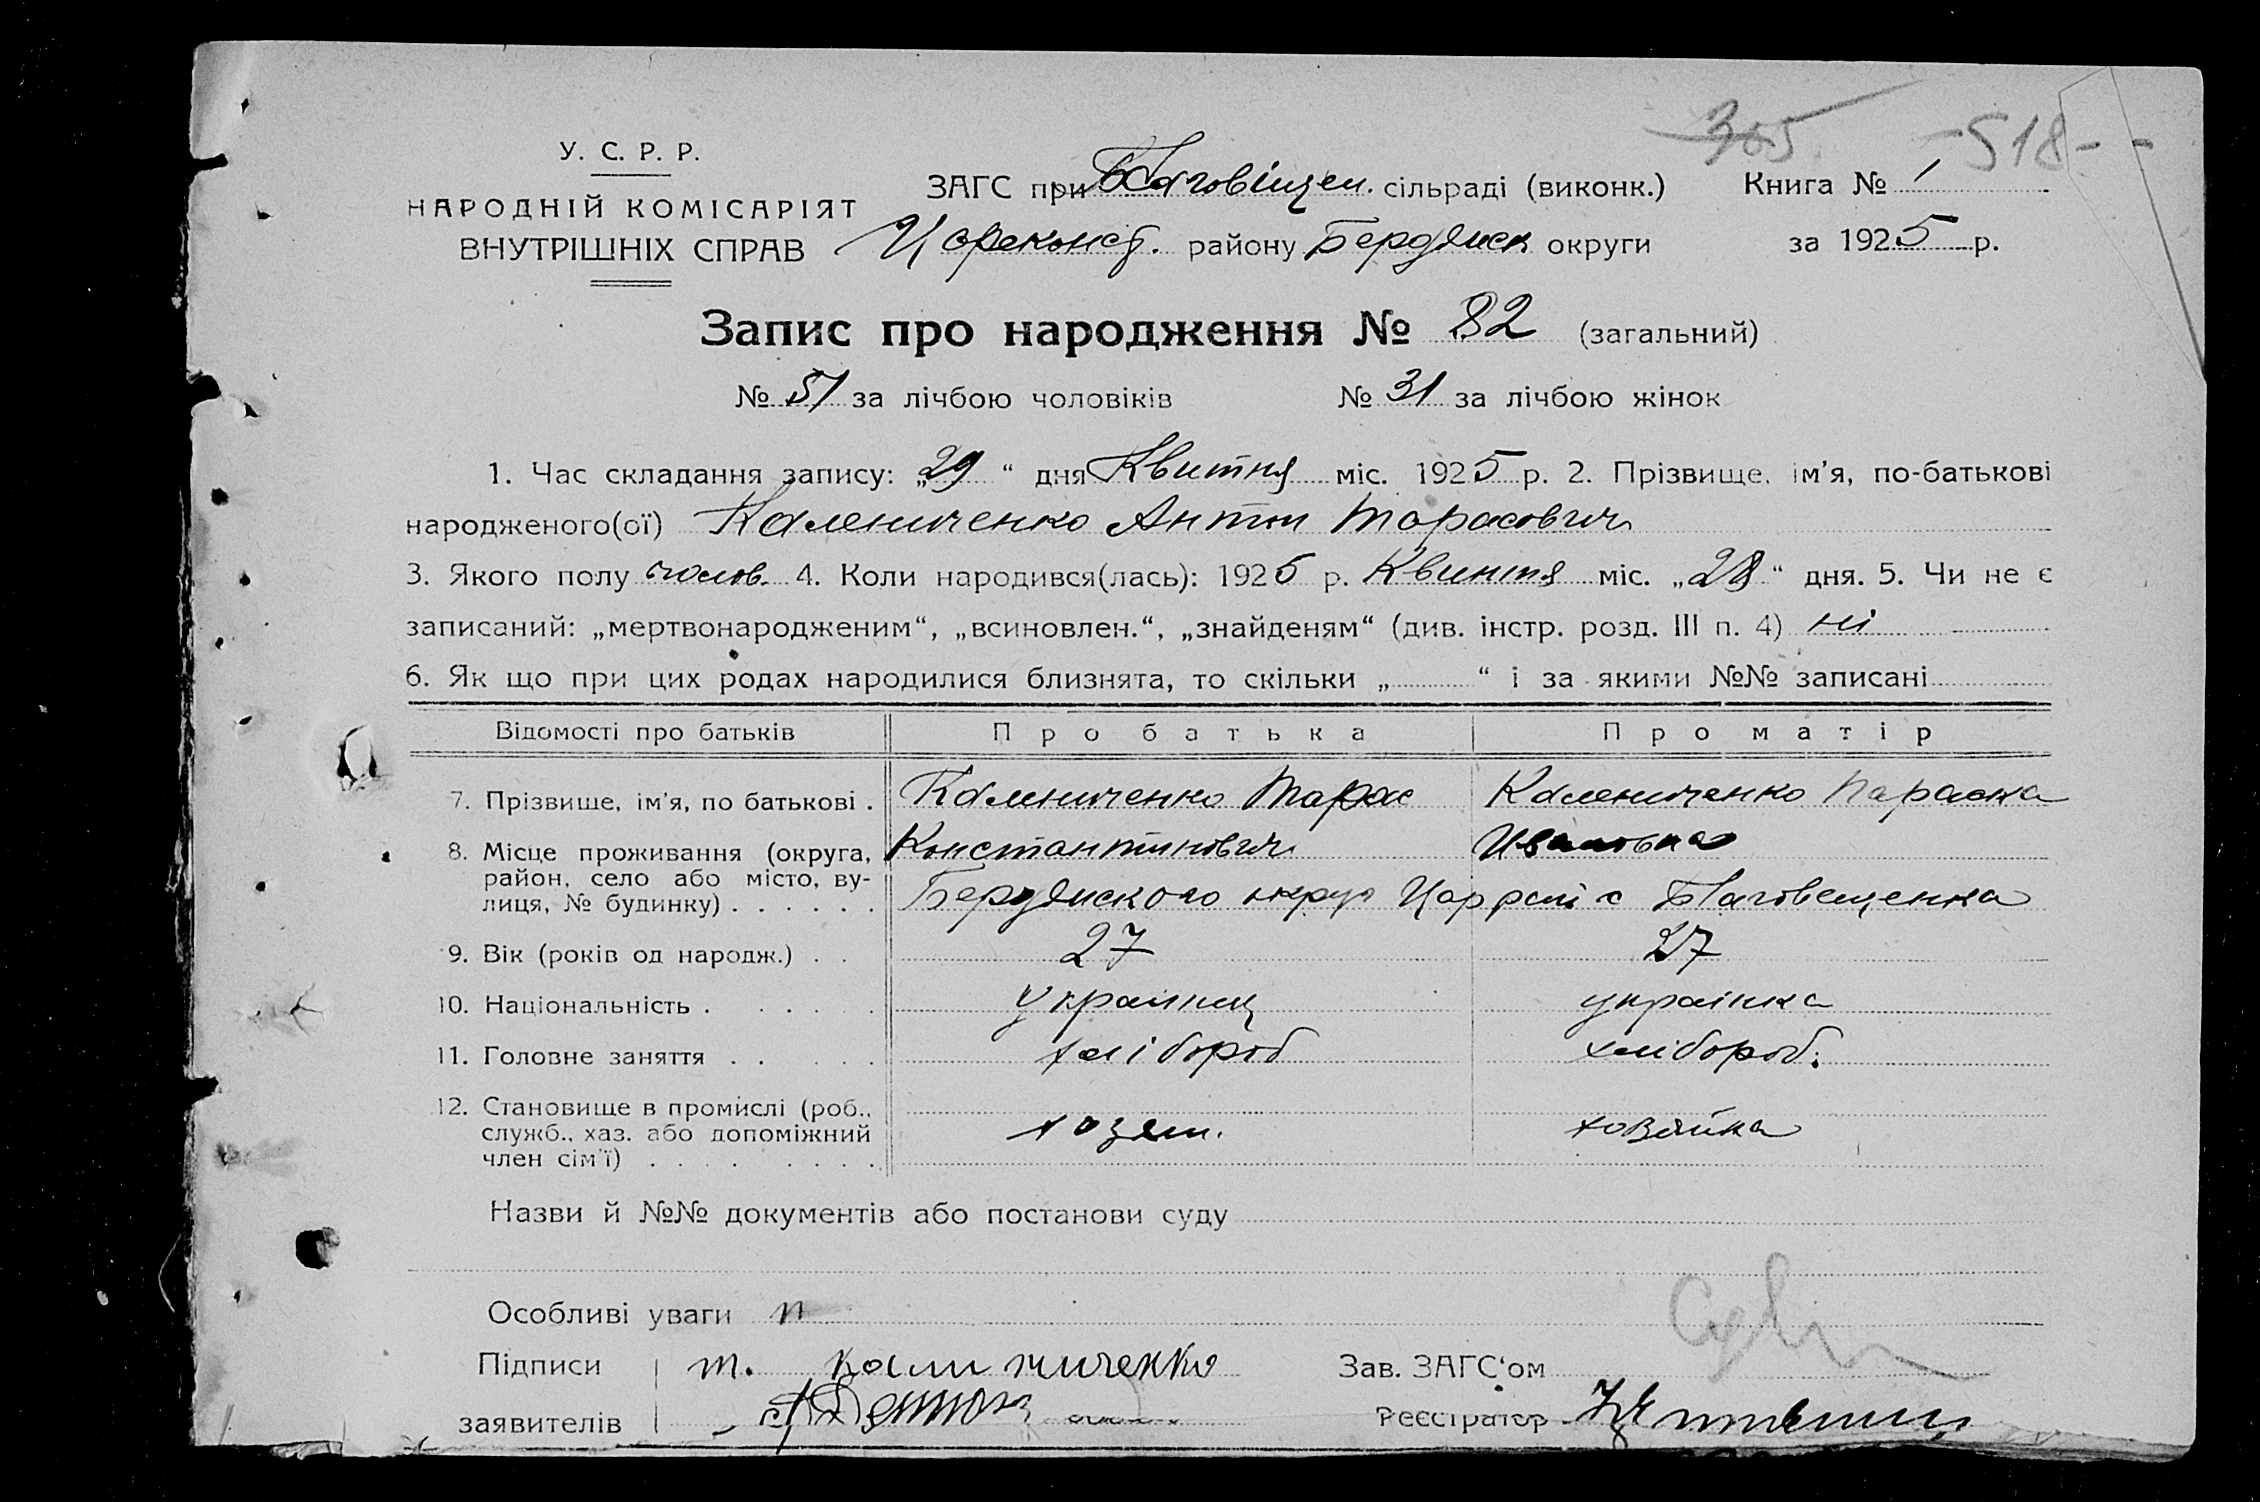 365 -518-
У. С. Р. Р.
НАРОДНІЙ КОМІСАРІЯТ
ВНУТРІШНІХ СПРАВ
ЗАГС при Благовіщен. сільраді (виконк.) Книга № 1
Цареконст. району Бердянск округи за 1925 р.
Запис про народження № 82 (загальний)
№ 51 за лічбою чоловіків № 31 за лічбою жінок
1. Час складання запису: „29“ дня Квитня міс. 1925 р. 2. Прізвище, ім'я, по-батькові
народженого(ої) Калениченко Антон Тарасович
3. Якого полу чолов. 4. Коли народився(лась): 1925 р. Квитня міс. „28“ дня. 5. Чи не є
записаний: „мертвонародженим“, „всиновлен.“, „знайденям“ (див. інстр. розд. III п. 4) ні
6. Як що при цих родах народилися близнята, то скільки „ “ і за якими №№ записані
Відомості про батьків Про батька Про матір
7. Прізвище, ім'я, по батькові . Калениченко Тарас Калениченко Параска
Константинович Ивановна
8. Місце проживання (округа,
район, село або місто, ву-
лиця, № будинку) . . . . . . Бердянского округа Цар рай с Благовещенка
9. Вік (років од народж.) . . 27 27
10. Національність . . . . . . Украинец украінка
11. Головне заняття . . . . . хлібороб хлібороб.
12. Становище в промислі (роб.,
служб., хаз. або допоміжний
член сім'ї) . . . . . . . . хозяин. хозяйка
Назви й №№ документів або постанови суду
Особливі уваги
Підписи т. калениченко Зав. ЗАГС'ом
заявителів Реєстратор